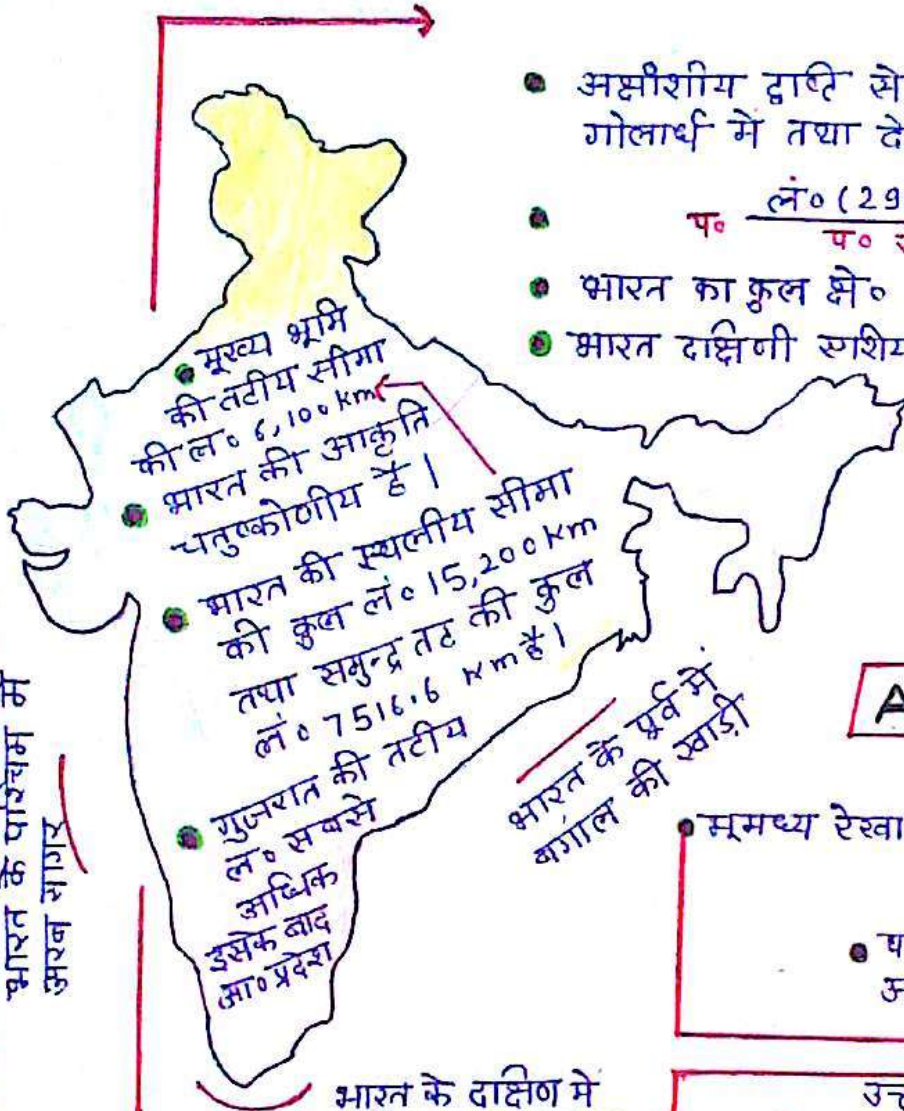 अक्षांशीय दृष्टि से
गोलार्ध में तथा दे
प० लं० (29
प०
भारत का कुल क्षे०
भारत दक्षिणी एशिय
मुख्य भूमि
की तटीय सीमा
की लं० 6,100 km
भारत की आकृति
चतुष्कोणीय है।
भारत की स्थलीय सीमा
की कुल लं० 15,200 km
तथा समुन्द्र तट की कुल
लं० 7516.6 km है।
गुजरात की तटीय
लं० सबसे
अधिक
इसके बाद
आ० प्रदेश
भारत के पूर्व में
बंगाल की खाड़ी
भारत के पश्चिम में
अरब सागर
A
भूमध्य रेखा
भारत के दक्षिण में